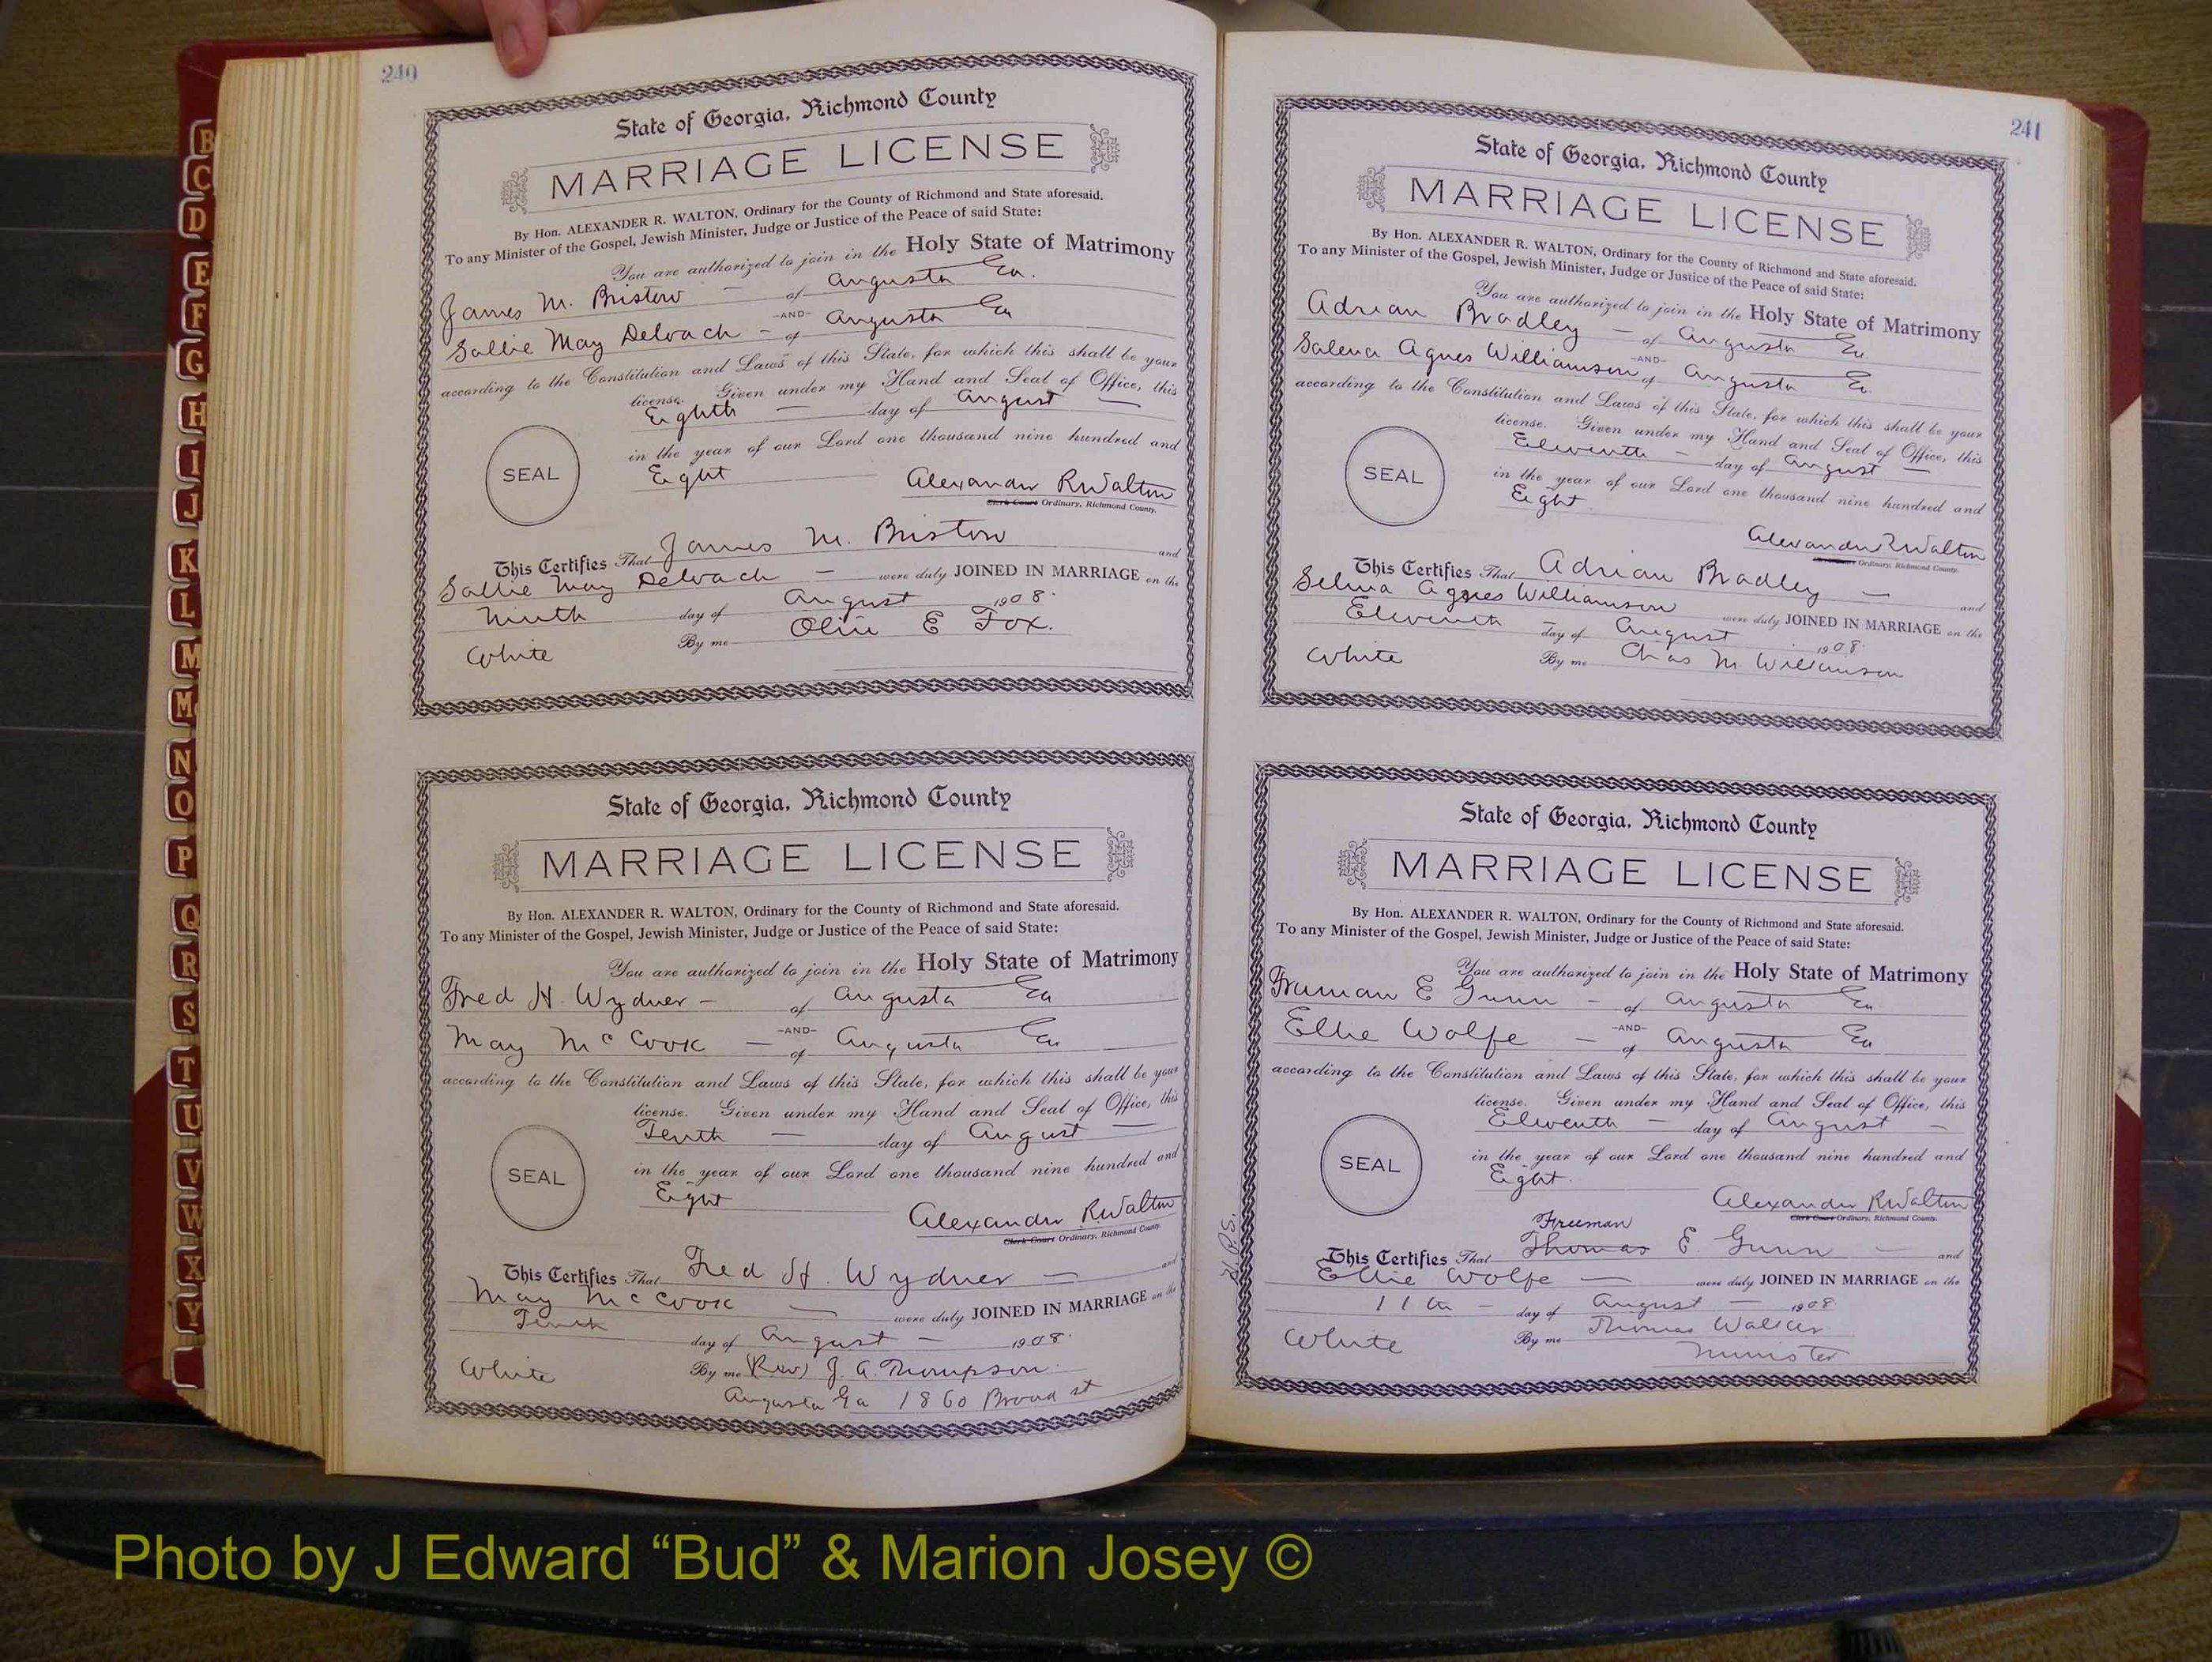 240
State of Georgia, Richmond County
MARRIAGE LICENSE
By Hon. ALEXANDER R. WALTON, Ordinary for the County of Richmond and State aforesaid.
To any Minister of the Gospel, Jewish Minister, Judge or Justice of the Peace of said State:
You are authorized to join in the Holy State of Matrimony
James M. Bristow — of Augusta Ga.
-AND-
Sallie May Deloach — of Augusta Ga
according to the Constitution and Laws of this State, for which this shall be your
license. Given under my Hand and Seal of Office, this
Eighth — day of August —
in the year of our Lord one thousand nine hundred and
SEAL
Eight
Alexander R Walton
Clerk Court Ordinary, Richmond County.
This Certifies That James M. Bristow and
Sallie May Deloach — were duly JOINED IN MARRIAGE on the
Ninth day of August 1908.
White By me Olin E Fox.
State of Georgia, Richmond County
MARRIAGE LICENSE
By Hon. ALEXANDER R. WALTON, Ordinary for the County of Richmond and State aforesaid.
To any Minister of the Gospel, Jewish Minister, Judge or Justice of the Peace of said State:
You are authorized to join in the Holy State of Matrimony
Fred H. Wydner — of Augusta Ga
-AND-
May McCook — of Augusta Ga
according to the Constitution and Laws of this State, for which this shall be your
license. Given under my Hand and Seal of Office, this
Tenth — day of August —
in the year of our Lord one thousand nine hundred and
SEAL
Eight
Alexander R Walton
Clerk Court Ordinary, Richmond County.
This Certifies That Fred H. Wydner — and
May McCook — were duly JOINED IN MARRIAGE on the
Tenth day of August — 1908.
White By me (Rev) J. A. Thompson.
Augusta Ga 1860 Broad st
241
State of Georgia, Richmond County
MARRIAGE LICENSE
By Hon. ALEXANDER R. WALTON, Ordinary for the County of Richmond and State aforesaid.
To any Minister of the Gospel, Jewish Minister, Judge or Justice of the Peace of said State:
You are authorized to join in the Holy State of Matrimony
Adrian Bradley — of Augusta Ga
-AND-
Salena Agnes Williamson of Augusta Ga
according to the Constitution and Laws of this State, for which this shall be your
license. Given under my Hand and Seal of Office, this
Eleventh — day of August —
in the year of our Lord one thousand nine hundred and
SEAL
Eight
Alexander R Walton
Clerk Court Ordinary, Richmond County.
This Certifies That Adrian Bradley — and
Selina Agnes Williamson were duly JOINED IN MARRIAGE on the
Eleventh day of August 1908.
White By me Chas M Williamson
State of Georgia, Richmond County
MARRIAGE LICENSE
By Hon. ALEXANDER R. WALTON, Ordinary for the County of Richmond and State aforesaid.
To any Minister of the Gospel, Jewish Minister, Judge or Justice of the Peace of said State:
You are authorized to join in the Holy State of Matrimony
Fruman E Gunn — of Augusta Ga
-AND-
Ellie Wolfe — of Augusta Ga
according to the Constitution and Laws of this State, for which this shall be your
license. Given under my Hand and Seal of Office, this
Eleventh — day of August —
in the year of our Lord one thousand nine hundred and
SEAL
Eight.
Alexander R Walton
Clerk Court Ordinary, Richmond County.
Freeman
This Certifies That Thomas E. Gunn — and
Ellie Wolfe — were duly JOINED IN MARRIAGE on the
11th — day of August — 1908
White By me Thomas Walker
Minister
B
C
D
E
F
G
H
I
J
K
L
M
Mc
N
O
P
Q
R
S
T
U
V
W
X
Y
Photo by J Edward “Bud” & Marion Josey ©